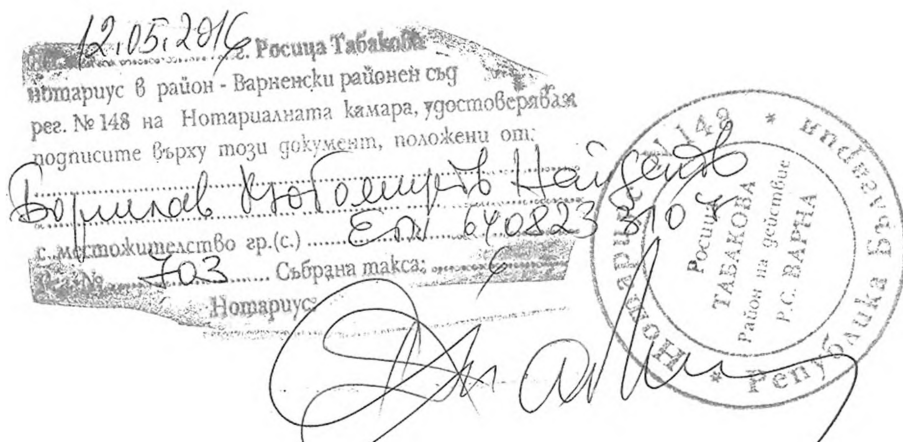 12.05.2016 г. Росица Табакова
нотариус в район - Варненски районен съд
рег. № 148 на Нотариалната камара, удостоверявам
подписите върху този документ, положени от:
Борислав Любомиров Найденов
с местожителство гр.(с.) ЕГН 6408233107
Рег. № 703 Събрана такса:
Нотариус:
Нотариус № 148 * Република България *
Росица
ТАБАКОВА
Район на действие
Р.С. ВАРНА